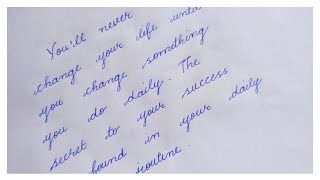 You'll never
change your life until
you change something
you do daily. The
secret to your success
found in your daily
routine.